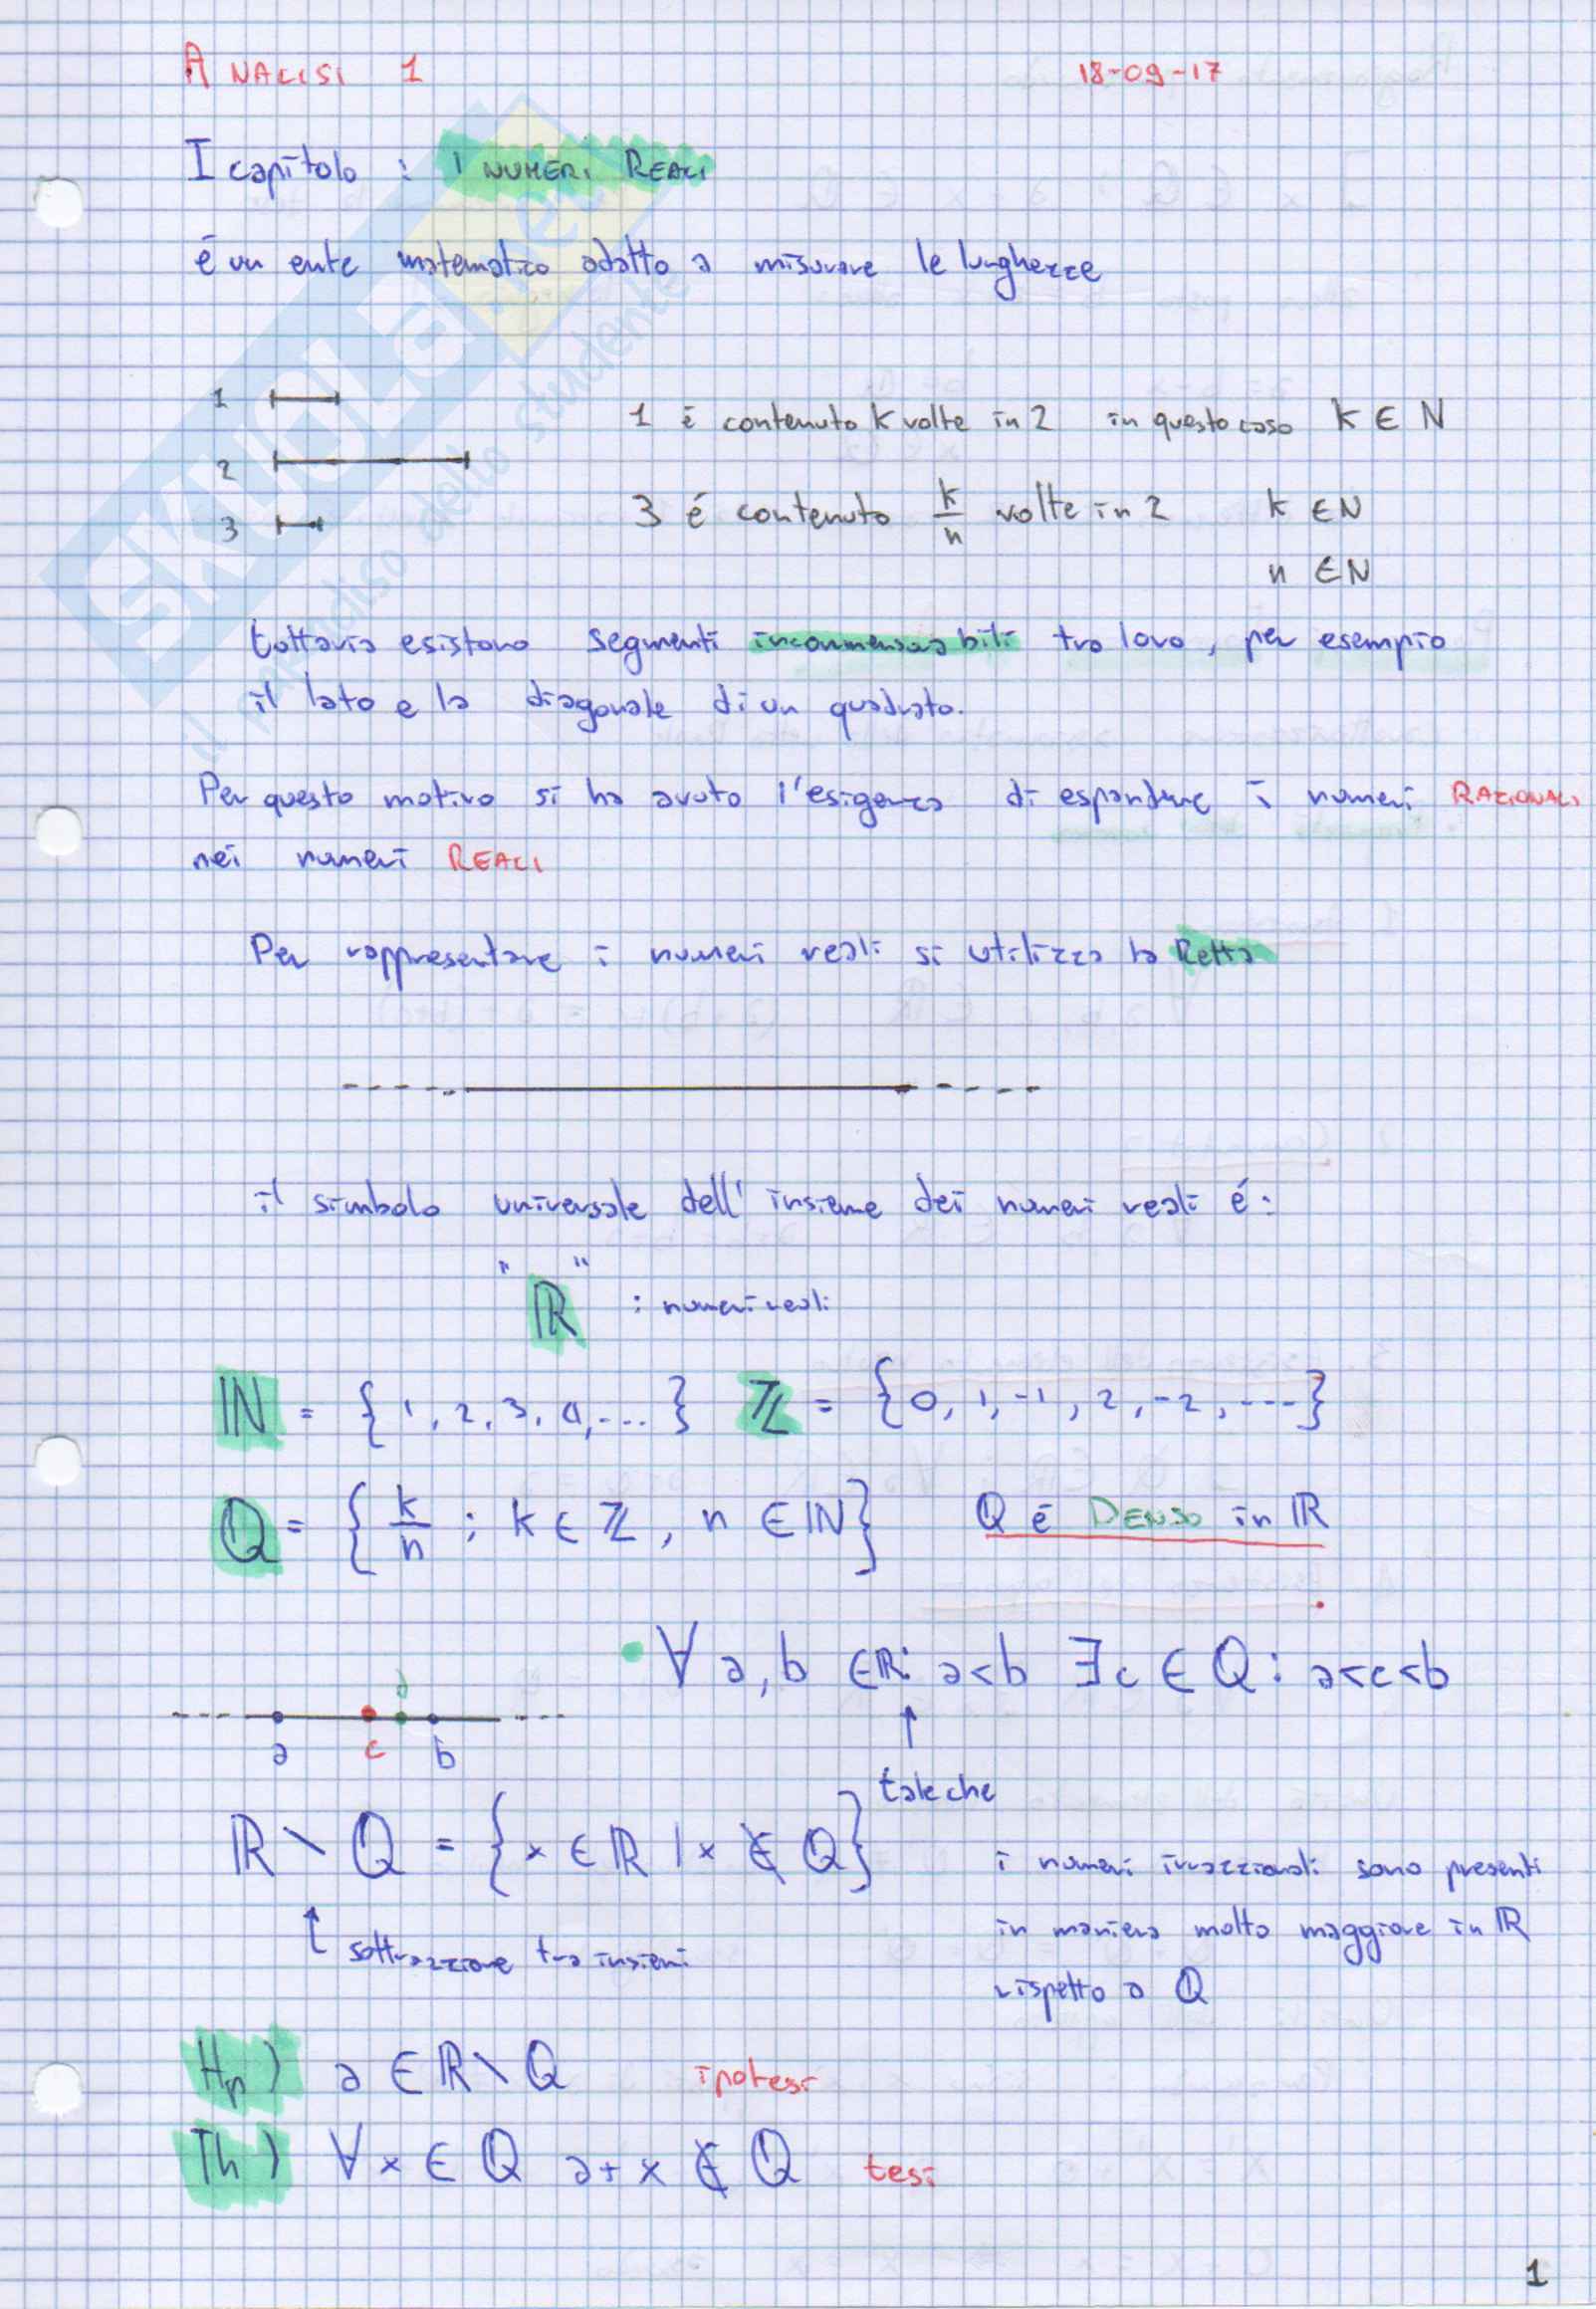 ANALISI 1 18-09-17
I capitolo : I NUMERI REALI
é un ente matematico adatto a misurare le lunghezze
1
1 é contenuto k volte in 2 in questo caso K ∈ N
2
3 é contenuto k/n volte in 2 k ∈ N
3
n ∈ N
tuttavia esistono segmenti incommensurabili tra loro, per esempio
il lato e la diagonale di un quadrato.
Per questo motivo si ha avuto l'esigenza di espandere i numeri RAZIONALI
nei numeri REALI
Per rappresentare i numeri reali si utilizza la Retta
il simbolo universale dell'insieme dei numeri reali é:
"ℝ" : numeri reali
ℕ = { 1, 2, 3, 4, ... } ℤ = {0, 1, -1, 2, -2, ---}
ℚ = { k/n ; k ∈ ℤ, n ∈ ℕ} ℚ é DENSO in ℝ
∀ a, b ∈ ℝ: a<b ∃c ∈ ℚ: a<c<b
d
a c b
tale che
ℝ \ ℚ = {x ∈ ℝ | x ∉ ℚ}
i numeri irrazzionali sono presenti
in maniera molto maggiore in ℝ
sottrazzione tra insiemi
rispetto a ℚ
Hp) a ∈ ℝ \ ℚ ipotesi
Th) ∀x ∈ ℚ a+x ∉ ℚ tesi
1
SKUOLA.net
il paradiso dello studente